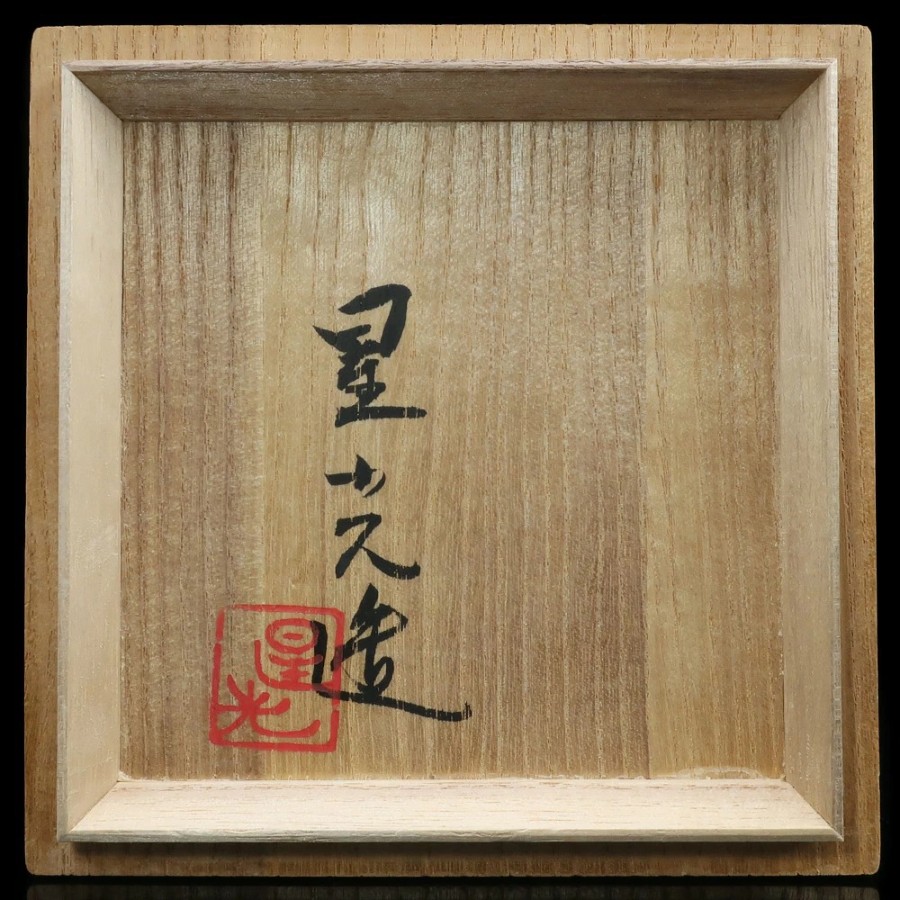 星光造
星光